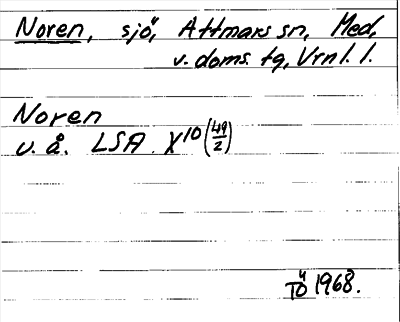 Noren, sjö, Attmars sn, Med,
v. doms. tg, Vrn l. l.
Noren
u. å. LSA X10 (49/2)
4/10 1968.